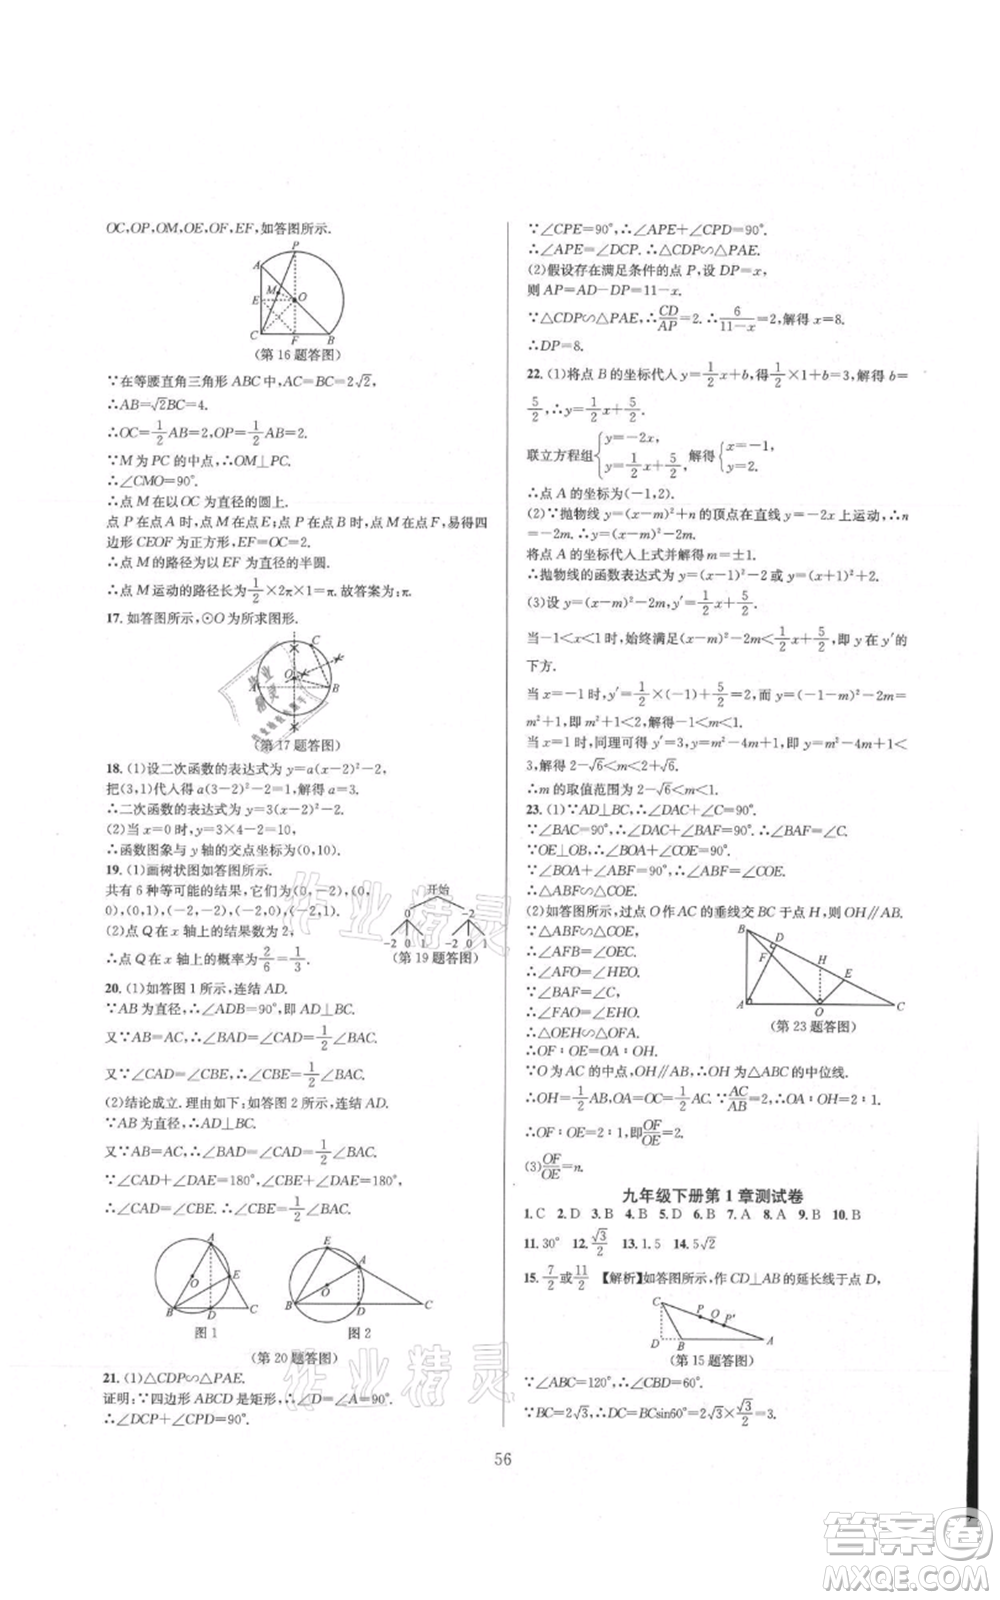 OC,OP,OM,OE,OF,EF,如答图所示.
P
A
M
E
O
C
F
B
(第16题答图)
∵在等腰直角三角形ABC中,AC=BC=2√2,
∴AB=√2BC=4.
∴OC=1/2AB=2,OP=1/2AB=2.
∵M为PC的中点,∴OM⊥PC.
∴∠CMO=90°.
∴点M在以OC为直径的圆上.
点P在点A时,点M在点E;点P在点B时,点M在点F,易得四
边形CEOF为正方形,EF=OC=2.
∴点M的路径为以EF为直径的半圆.
∴点M运动的路径长为1/2×2π×1=π.故答案为:π.
17. 如答图所示,⊙O为所求图形.
C
O
A
B
(第17题答图)
18. (1)设二次函数的表达式为y=a(x-2)²-2,
把(3,1)代入得a(3-2)²-2=1,解得a=3.
∴二次函数的表达式为y=3(x-2)²-2.
(2)当x=0时,y=3×4-2=10,
∴函数图象与y轴的交点坐标为(0,10).
19. (1)画树状图如答图所示.
共有6种等可能的结果,它们为(0,-2),(0,
0),(0,1),(-2,-2),(-2,0),(-2,1).
(2)点Q在x轴上的结果数为2,
∴点Q在x轴上的概率为2/6=1/3.
开始
0 -2
-2 0 1 -2 0 1
(第19题答图)
20. (1)如答图1所示,连结AD.
∵AB为直径,∴∠ADB=90°,即AD⊥BC.
又∵AB=AC,∴∠BAD=∠CAD=1/2∠BAC.
∵∠CAD=∠CBE,∴∠CBE=1/2∠BAC.
(2)结论成立.理由如下:如答图2所示,连结AD.
∵AB为直径,∴AD⊥BC.
又∵AB=AC,∴∠BAD=∠CAD=1/2∠BAC.
∵∠CAD+∠DAE=180°,∠CBE+∠DAE=180°,
∴∠CAD=∠CBE.∴∠CBE=1/2∠BAC.
A
E
O
B
D
C
图1
E
A
O
B
D
C
图2
(第20题答图)
21. (1)△CDP∽△PAE.
证明:∵四边形ABCD是矩形,∴∠D=∠A=90°.
∴∠DCP+∠CPD=90°.
∵∠CPE=90°,∴∠APE+∠CPD=90°.
∴∠APE=∠DCP.∴△CDP∽△PAE.
(2)假设存在满足条件的点P,设DP=x,
则AP=AD-DP=11-x.
∵△CDP∽△PAE,∴CD/AP=2.∴6/(11-x)=2,解得x=8.
∴DP=8.
22. (1)将点B的坐标代入y=1/2x+b,得1/2×1+b=3,解得b=
5/2,∴y=1/2x+5/2.
联立方程组{y=-2x, y=1/2x+5/2,解得{x=-1, y=2.
∴点A的坐标为(-1,2).
(2)∵抛物线y=(x-m)²+n的顶点在直线y=-2x上运动,∴n
=-2m.∴y=(x-m)²-2m.
将点A的坐标代入上式并解得m=±1.
∴抛物线的函数表达式为y=(x-1)²-2或y=(x+1)²+2.
(3)设y=(x-m)²-2m,y′=1/2x+5/2,
当-1<x<1时,始终满足(x-m)²-2m<1/2x+5/2,即y在y′的
下方.
当x=-1时,y′=1/2×(-1)+5/2=2,而y=(-1-m)²-2m=
m²+1,即m²+1<2,解得-1<m<1.
当x=1时,同理可得y′=3,y=m²-4m+1,即m²-4m+1<3,
解得2-√6<m<2+√6.
∴m的取值范围为2-√6<m<1.
23. (1)∵AD⊥BC,∴∠DAC+∠C=90°.
∵∠BAC=90°,∴∠DAC+∠BAF=90°.∴∠BAF=∠C.
∵OE⊥OB,∴∠BOA+∠COE=90°.
∵∠BOA+∠ABF=90°,∴∠ABF=∠COE.
∴△ABF∽△COE.
(2)如答图所示,过点O作AC的垂线交BC于点H,则OH∥AB.
∵△ABF∽△COE,
∴∠AFB=∠OEC.
∴∠AFO=∠HEO.
∵∠BAF=∠C,
∴∠FAO=∠EHO.
∴△OEH∽△OFA.
∴OF∶OE=OA∶OH.
B
D
F
H
E
A
O
C
(第23题答图)
∵O为AC的中点,OH∥AB,∴OH为△ABC的中位线.
∴OH=1/2AB,OA=OC=1/2AC.∵AC/AB=2,∴OA∶OH=2∶1.
∴OF∶OE=2∶1,即OF/OE=2.
(3)OF/OE=n.
九年级下册第1章测试卷
1. C 2. D 3. B 4. B 5. D 6. B 7. A 8. A 9. B 10. B
11. 30° 12. √3/2 13. 1.5 14. 5√2
15. 7/2或11/2 【解析】如答图所示,作CD⊥AB的延长线于点D,
C
P
Q
P′
D
B
A
(第15题答图)
∵∠ABC=120°,∴∠CBD=60°.
∵BC=2√3,∴DC=BCsin60°=2√3×√3/2=3.
56
作业精灵
作业精灵
答案圈
MXQE.COM